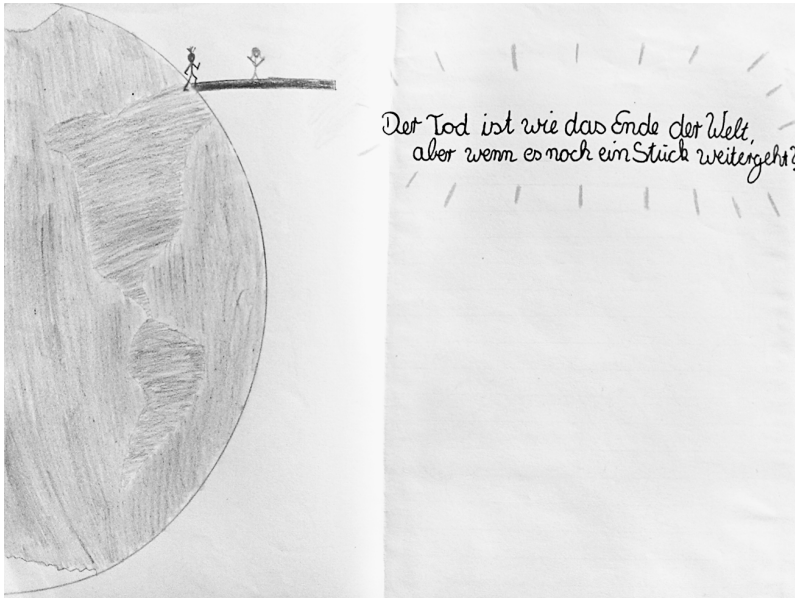 Der Tod ist wie das Ende der Welt,
aber wenn es noch ein Stück weitergeht?